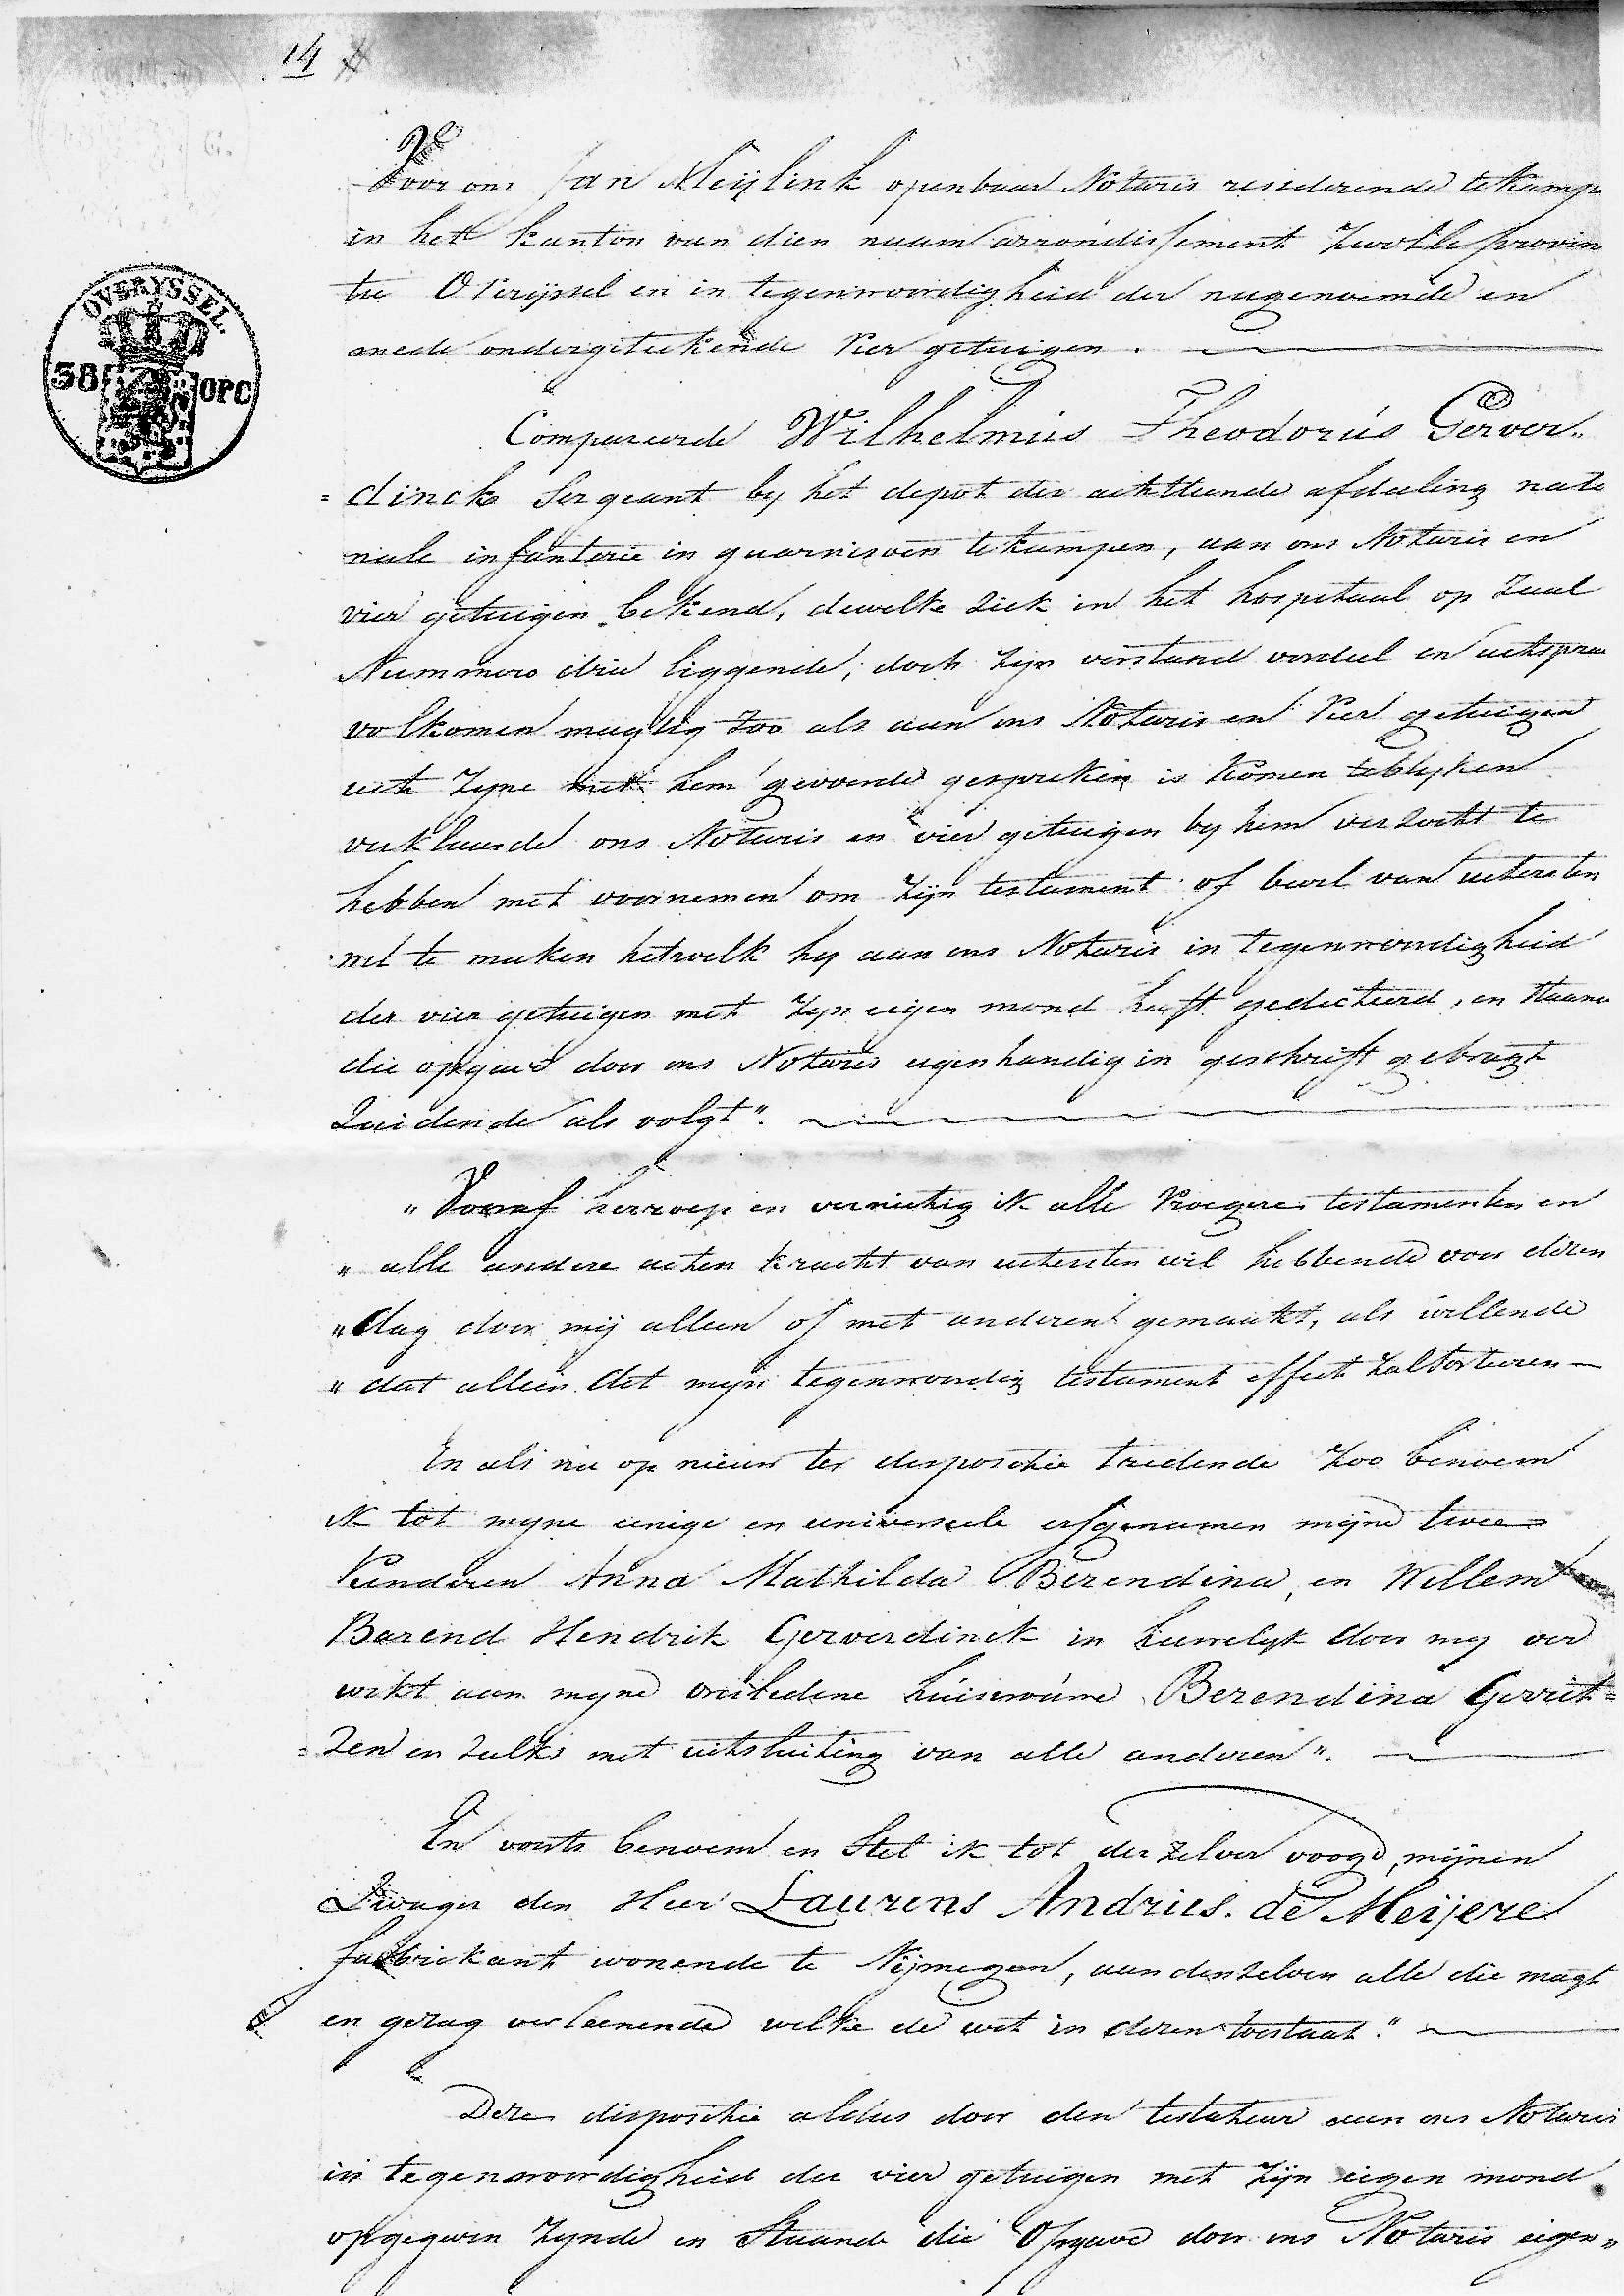 14
OVERYSSEL.
38 OPC
Voor ons Jan Meijlink openbaar Notaris residerende te Kampe
in het kanton van dien naam arrondissement Zwolle provin
tie Overijssel en in tegenwoordigheid der nagenoemde en
mede ondergetekende vier getuigen.
Compareerde Wilhelmus Theodorus Gerver„
= dinck Sergeant by het depot der achttiende afdeeling natio
nale infanterie in guarnisoen te kampen, aan ons Notaris en
vier getuigen bekend, dewelke ziek in het hospitaal op zaal
Nummero drie liggende, doch zyn verstand oordeel en uitspraa
volkomen magtig zoo als aan ons Notaris en vier getuigen
uit zyne met hem gevoerde gesprekken is komen te blyken
verklaarde ons Notaris en vier getuigen by hem verzocht te
hebben met voornemen om zijn testament of bewl van uitersten
wil te maken hetwelk hy aan ons Notaris in tegenwoordigheid
der vier getuigen met zyn eigen mond heeft gedicteerd, en staande
die opgave door ons Notaris eigenhandig in geschrift gebragt
Luidende als volgt".
„ Vooraf herroep en vernietig ik alle vroegere testamenten en
„ alle andere acten kracht van uitersten wil hebbende voor dezen
„ dag door mij alleen of met anderen gemaakt, als willende
„ dat alleen dit mijn tegenwoordig testament effect zal sorteren —
En als nu op nieuw ter dispositie tredende zoo benoem
ik tot myne eenige en universeele erfgenamen mijne twee
kinderen Anna Mathilda Berendina, en Willem
Barend Hendrik Gerverdinck in huwelyk door my ver
wekt aan myne overledene huisvrouwe Berendina Gerrit=
= zen en zulks met uitsluiting van alle anderen".
En voorts benoem en stel ik tot derzelver voogd, mijnen
Zwager den Heer Laurens Andries. de Meijere
fabriekant wonende te Nijmegen, aan denzelven alle die magt
en gezag verleenende welke de wet in dezen toestaat."
Deze dispositie aldus door den testateur aan ons Notaris
in tegenwoordigheid der vier getuigen met zijn eigen mond
opgegeven zynde en staande die opgave door ons Notaris eigen„